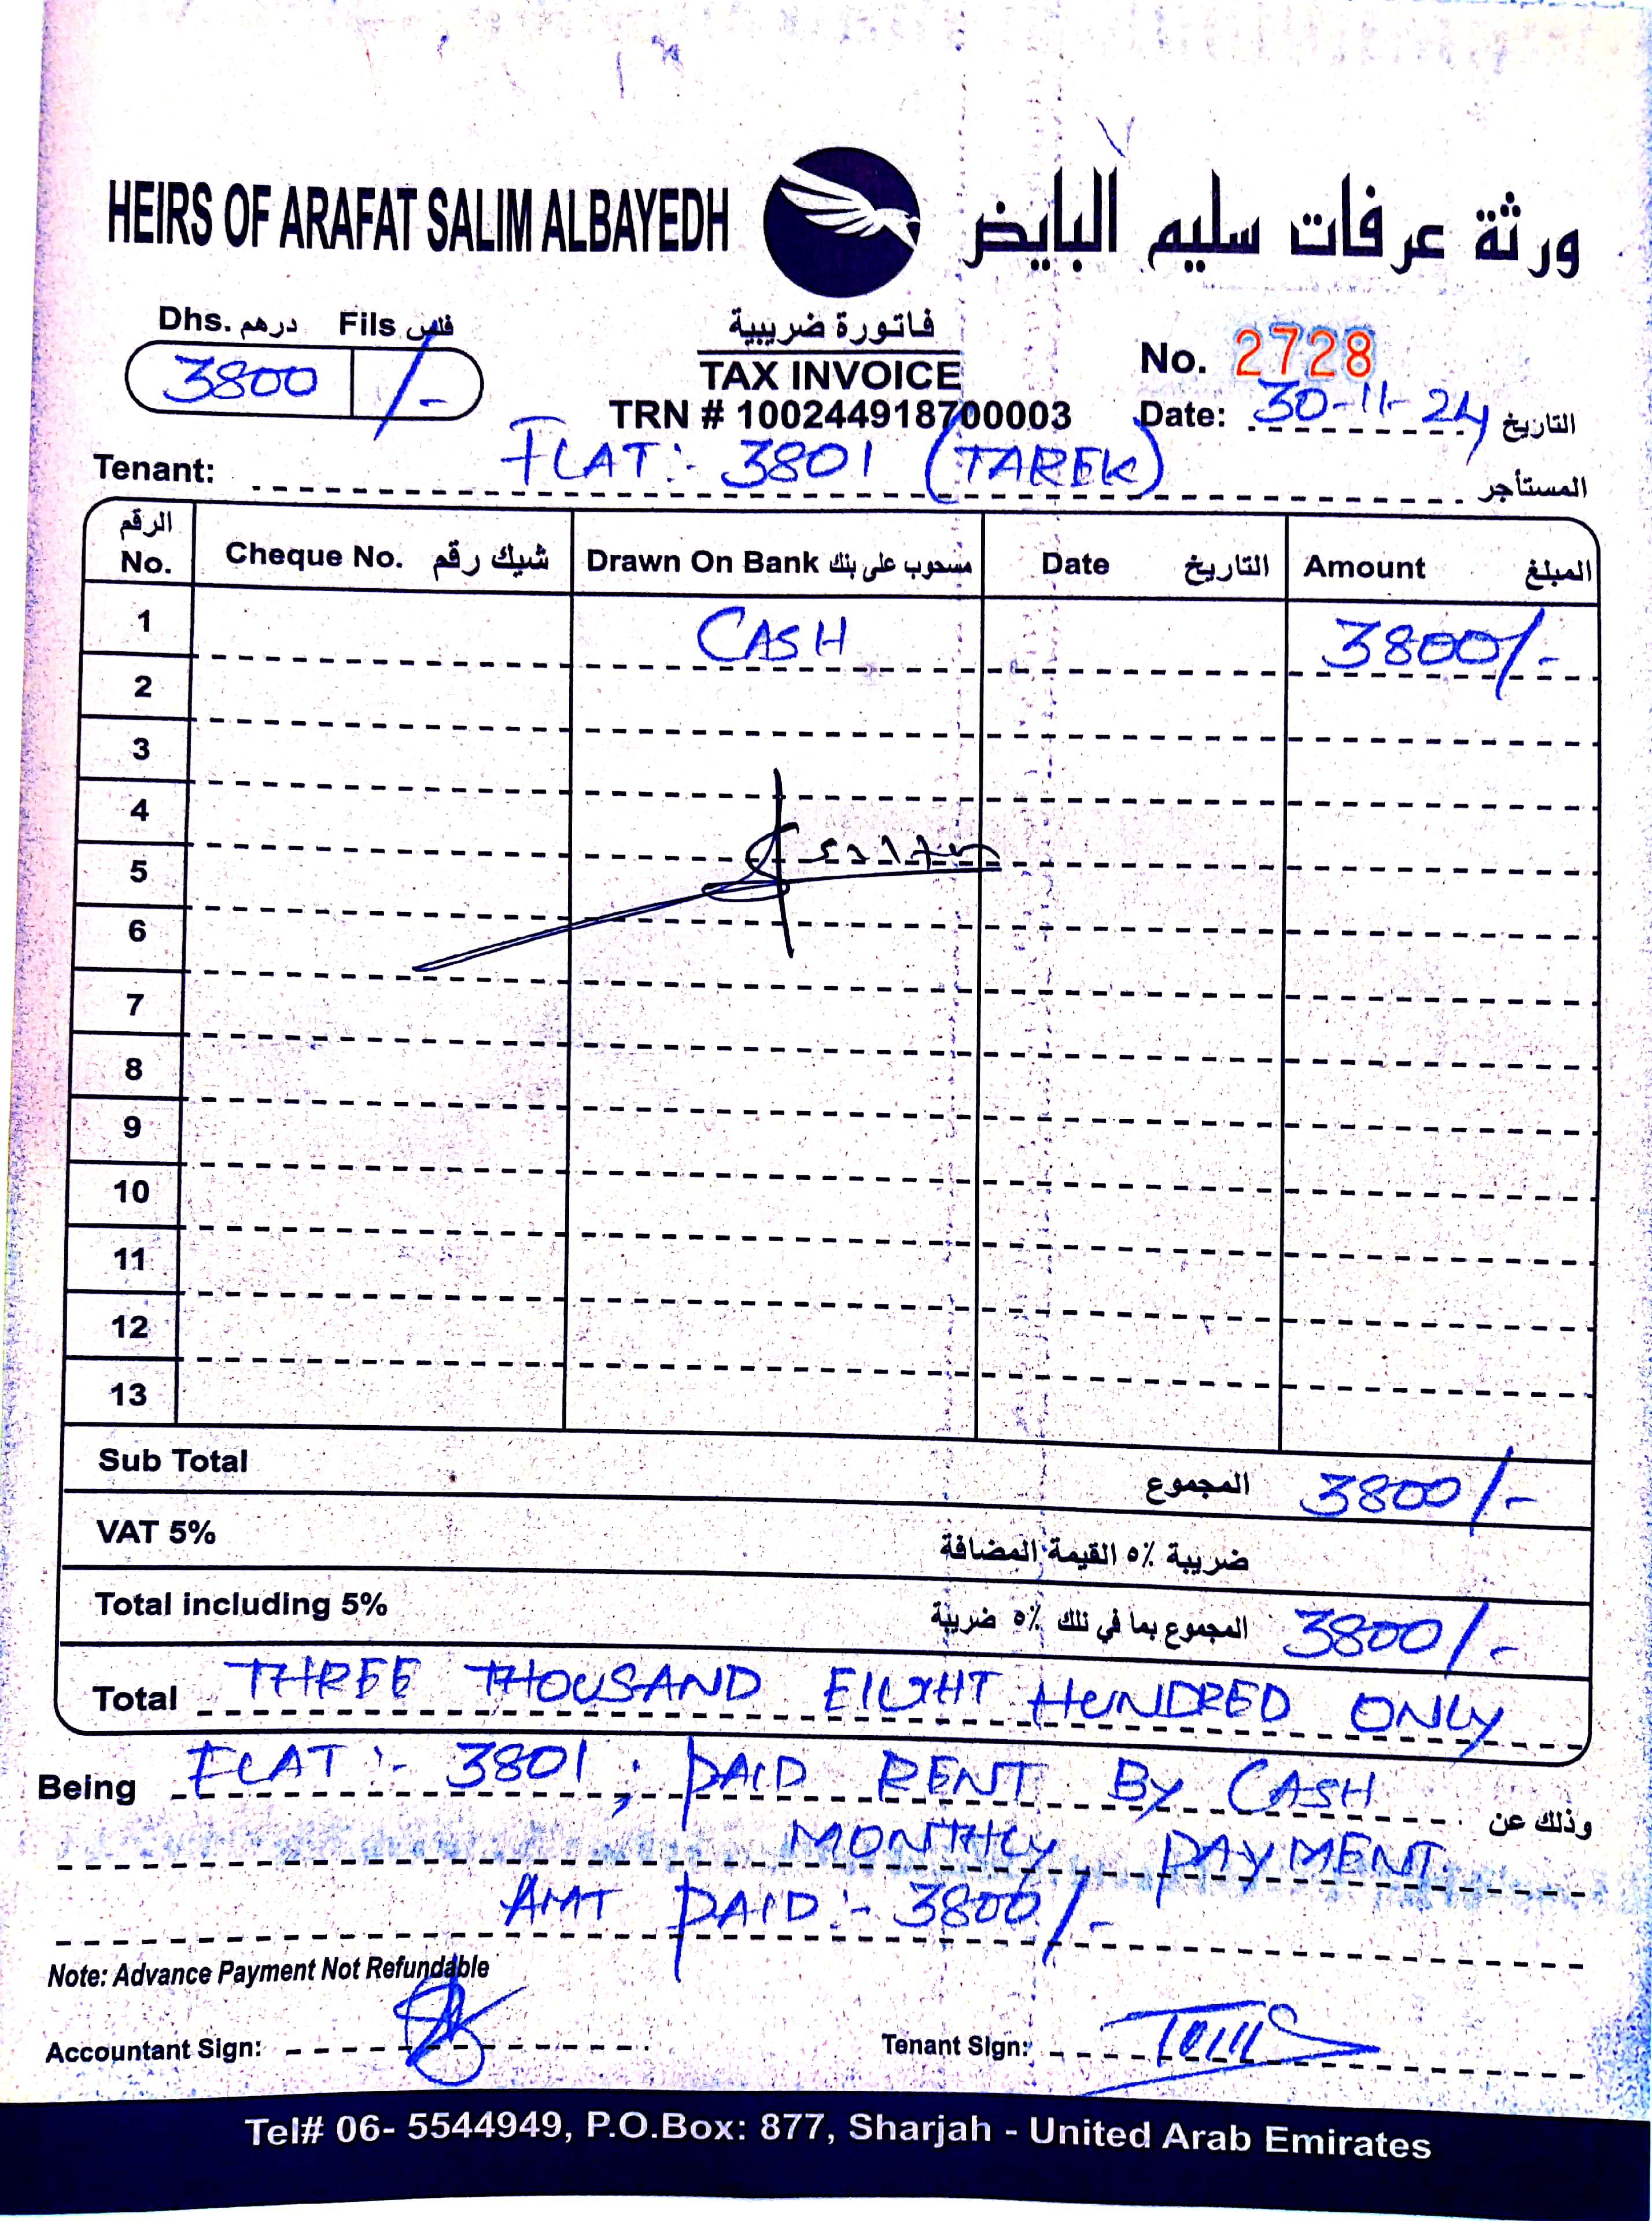 HEIRS OF ARAFAT SALIM ALBAYEDH ورثة عرفات سليم البايض
Dhs. درهم Fils فلس
3800 /-
فاتورة ضريبية
TAX INVOICE
TRN # 100244918700003
No. 2728
Date: 30-11-24 التاريخ
Tenant: FLAT:- 3801 (TAREK) المستأجر
الرقم No. Cheque No. شيك رقم Drawn On Bank مسحوب على بنك Date التاريخ Amount المبلغ
1 CASH 3800/-
2
3
4
5
6
7
8
9
10
11
12
13
Sub Total المجموع 3800/-
VAT 5% ضريبة ٥% القيمة المضافة
Total including 5% المجموع بما في ذلك ٥% ضريبة 3800/-
Total THREE THOUSAND EIGHT HUNDRED ONLY
Being FLAT:- 3801; PAID RENT By CASH وذلك عن
MONTHLY PAYMENT.
AMT PAID:- 3800/-
Note: Advance Payment Not Refundable
Accountant Sign: Tenant Sign:
Tel# 06- 5544949, P.O.Box: 877, Sharjah - United Arab Emirates